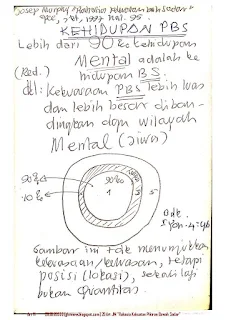 Josep Murphy, Rahasia Kekuatan bawah Sadar
1997 hal. 95.
KEHIDUPAN PBS
Lebih dari 90% kehidupan
Mental adalah ke
(Red.) hidupan BS.
dkl: Kekuasaan PBS lebih luas
dan lebih besar diban-
dingkan dgn wilayah
Mental (Jiwa)
90%
90%
10%
1
S
Gambar ini tdk menunjukkan
kekuasaan/kekuasan, tetapi
posisi (lokasi), sekali lagi
bukan Quantitas.